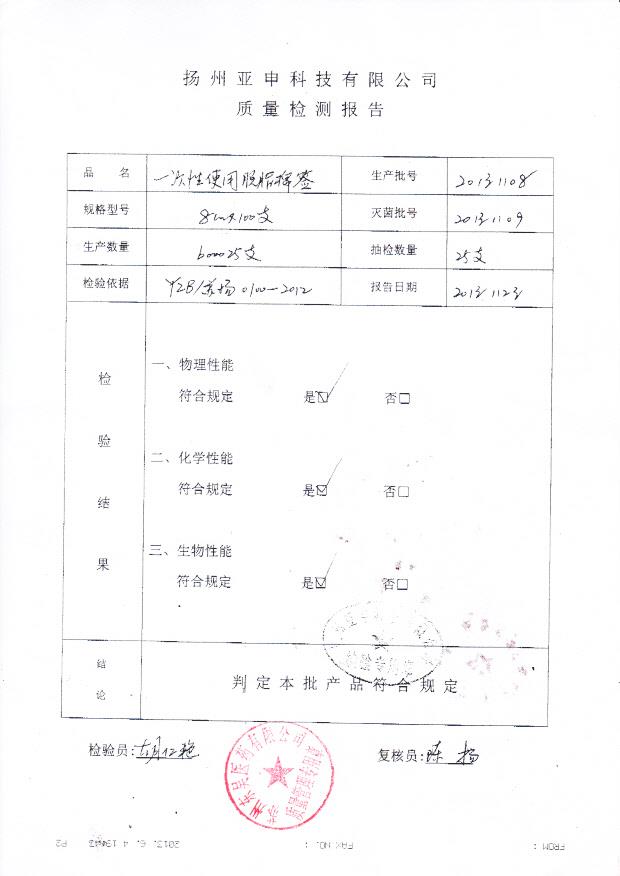 扬州亚申科技有限公司
质量检测报告
品 名 一次性使用脱脂棉签 生产批号 20131108
规格型号 8cm×100支 灭菌批号 20131109
生产数量 600025支 抽检数量 25支
检验依据 YZB/苏扬0100-2012 报告日期 20131123
检验结果
一、物理性能
符合规定 是☑ 否□
二、化学性能
符合规定 是☑ 否□
三、生物性能
符合规定 是☑ 否□
结论 判定本批产品符合规定
检验员:胡仁艳 复核员:陈扬
苏州东吴医药有限公司
质量管理专用章
FROM : FAX NO. : 2013. 6. 4 19:43 P2